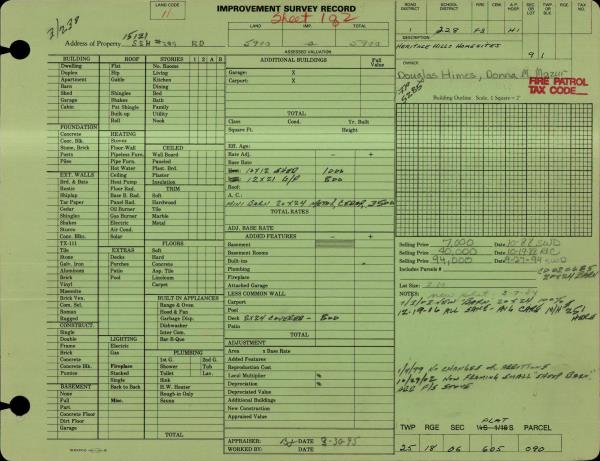 LAND CODE
11
IMPROVEMENT SURVEY RECORD
Sheet 1 of 2
Address of Property
15121
RD
LAND IMPR. TOTAL
5900 0 5900
ASSESSED VALUATION
ROAD DISTRICT SCHOOL DISTRICT FIRE DISTRICT A.P. HOSP. SEC TWP RGE TAX NO.
1 228 F3 H1
DESCRIPTION
HERITAGE HILLS HOMESITES
9 1
OWNER
Douglas Himes, Donna M. Mazur
FIRE PATROL
TAX CODE
Building Outline: Scale, 1 Square = 2'
BUILDING ROOF STORIES 1 2 A B
Dwelling Flat No. Rooms
Duplex Hip Living
Apartment Gable Kitchen
Barn Dining
Shed Shingles Bed
Garage Shakes Bath
Cabin Pat Shingle Family
Built up Utility
Roll Nook
FOUNDATION
Concrete HEATING
Conc. Blk. Stoves CEILED
Stone, Brick Floor-Wall Wall Board
Posts Pipeless Furn. Paneled
Piles Pipe Furn. Plast. Brd.
Hot Water Plaster
EXT. WALLS Ceiling Insulation
Brd. & Bats Heat Pump
Rustic Floor Rad. TRIM
Shiplap Base B. Rad. Soft
Tar Paper Panel Rad. Hardwood
Cedar Oil Burner Tile
Shingles Gas Burner Marble
Shakes Electric Metal
Stucco Air Cond.
Conc. Blks. Solar FLOORS
TX-111 Soft
Tile EXTRAS Hard
Stone Decks Concrete
Galv. Iron Porches Asp. Tile
Aluminum Patio Linoleum
Brick Pool Carpet
Vinyl
Masonite BUILT-IN APPLIANCES
Brick Ven. Range & Oven
Com. Hood & Fan
Roman Garbage Disp.
Rugged Dishwasher
CONSTRUCT. Inter Com.
Single Bar-B-Que
Double LIGHTING
Frame Electric PLUMBING
Brick Gas 1st G. 2nd G.
Concrete Shower Tub
Concrete Blk. Fireplace Toilet Lav.
Pumice Stacked Sink
Single H.W. Heater
BASEMENT Back to Back Rough-in Only
None Sauna
Full Misc.
Part.
Concrete Floor
Dirt Floor
Garage
TOTAL
ADDITIONAL BUILDINGS Full Value
Garage: X
Carport: X
TOTAL
Class Cond. Yr. Built
Square Ft. Height
Eff. Age:
Rate Adj. - +
Base Rate
10X12 SHED 1000
12X21 C/P 800
Roof:
A. C.:
MINI BARN 20X24 METAL, CEDAR 3500
TOTAL RATES
ADJ. BASE RATE
ADDED FEATURES - +
Basement
Basement Rooms
Built-ins
Plumbing
Fireplace
Attached Garage
LESS COMMON WALL
Carport
Pool
Deck 8X24 COVERED - 800
Patio
TOTAL
ADJUSTMENT
Area x Base Rate
Added Features
Reproduction Cost
Local Multiplier %
Depreciation %
Depreciated Value
Additional Buildings
New Construction
Appraised Value
APPRAISER: DATE 8-30-95
WORKED BY: DATE
Selling Price 7,000 Date 10-88 SWD
Selling Price 40,000 Date 10-19-88 R/C
Selling Price 94,000 Date 9-27-94 SWD
Includes Parcels #
Lot Size:
NOTES:
1/4/99 NO CHANGES OR ADDITIONS
10/29/02 NOW FEEDING SMALL "SHOP BARN"
PLAT
TWP RGE SEC 1/4 S 1/16 S PARCEL
25 18 06 605 090